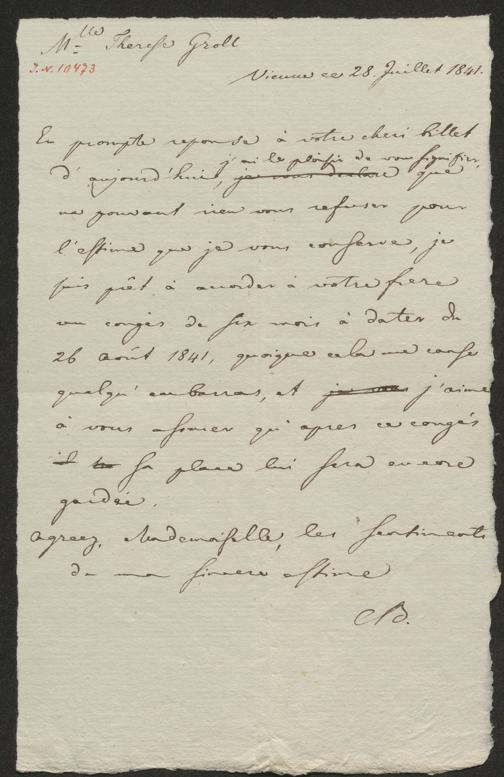 Mlle Therese Groll
I.N. 10473
Vienne ce 28. Juillet 1841.
En prompte reponse à votre cheri billet
j'ai le plaisir de vous signifier,
d'aujourd'huit, je vous declare que
ne pouvant rien vous refuser pour
l'estime que je vous conserve, je
suis prêt à accorder à votre frere
un congés de six mois à dater du
26 Août 1841, quoique cela me cause
quelqu' embarras, et j'aime
à vous assurer qu'apres ce congés
il sa place lui sera encore
gardée.
agreez, Mademoiselle, les sentiments
de ma sincere estime